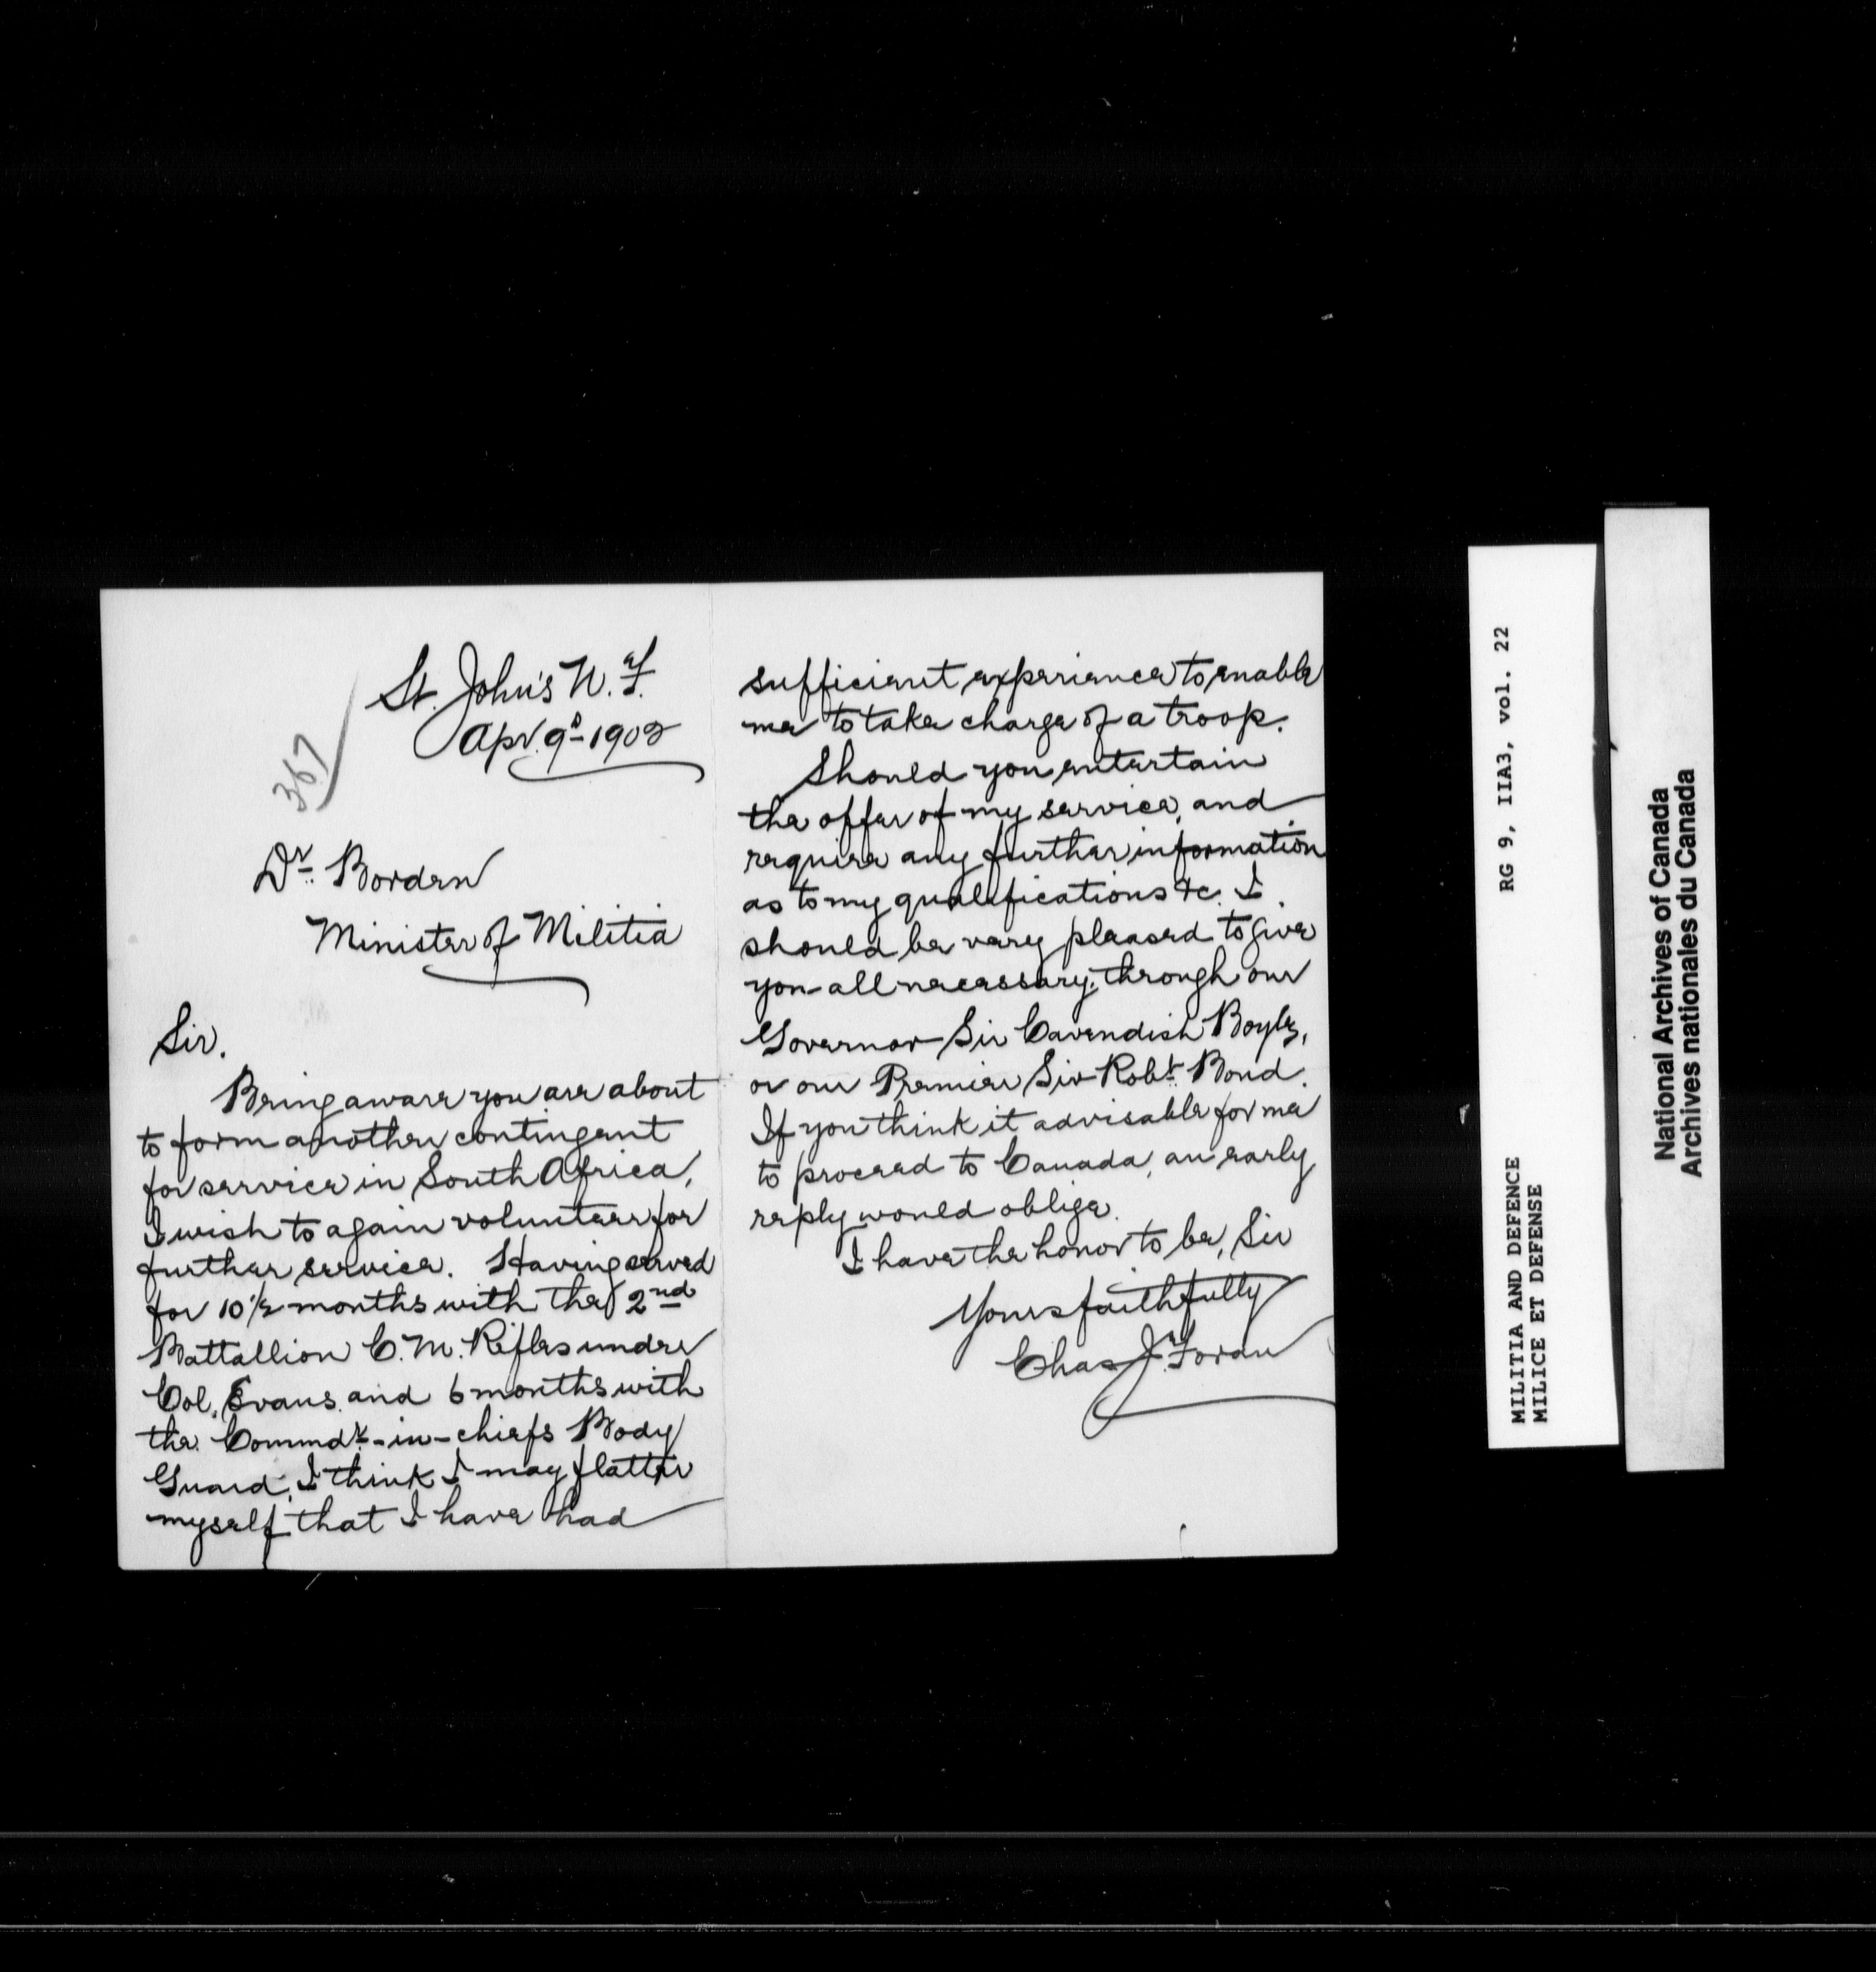 St. John's N.F.
Apr. 9th 1902
367
Dr. Borden
Minister of Militia
Sir.
Being aware you are about
to form another contingent
for service in South Africa,
I wish to again volunteer for
further service. Having served
for 10 1/2 months with the 2nd
Battallion C. M. Rifles under
Col. Evans. and 6 months with
the Commdr.-in-chiefs Body
Guard, I think I may flatter
myself that I have had
sufficient experience to enable
me to take charge of a troop.
Should you entertain
the offer of my service, and
require any further information
as to my qualifications &c. I
should be very pleased to give
you all necessary, through our
Governor Sir Cavendish Boyle,
or our Premier Sir Robt. Bond.
If you think it advisable for me
to proceed to Canada, an early
reply would oblige.
I have the honor to be, Sir
Yours faithfully
Chas J. Foran
MILITIA AND DEFENCE RG 9, IIA3, vol. 22
MILICE ET DEFENSE
National Archives of Canada
Archives nationales du Canada